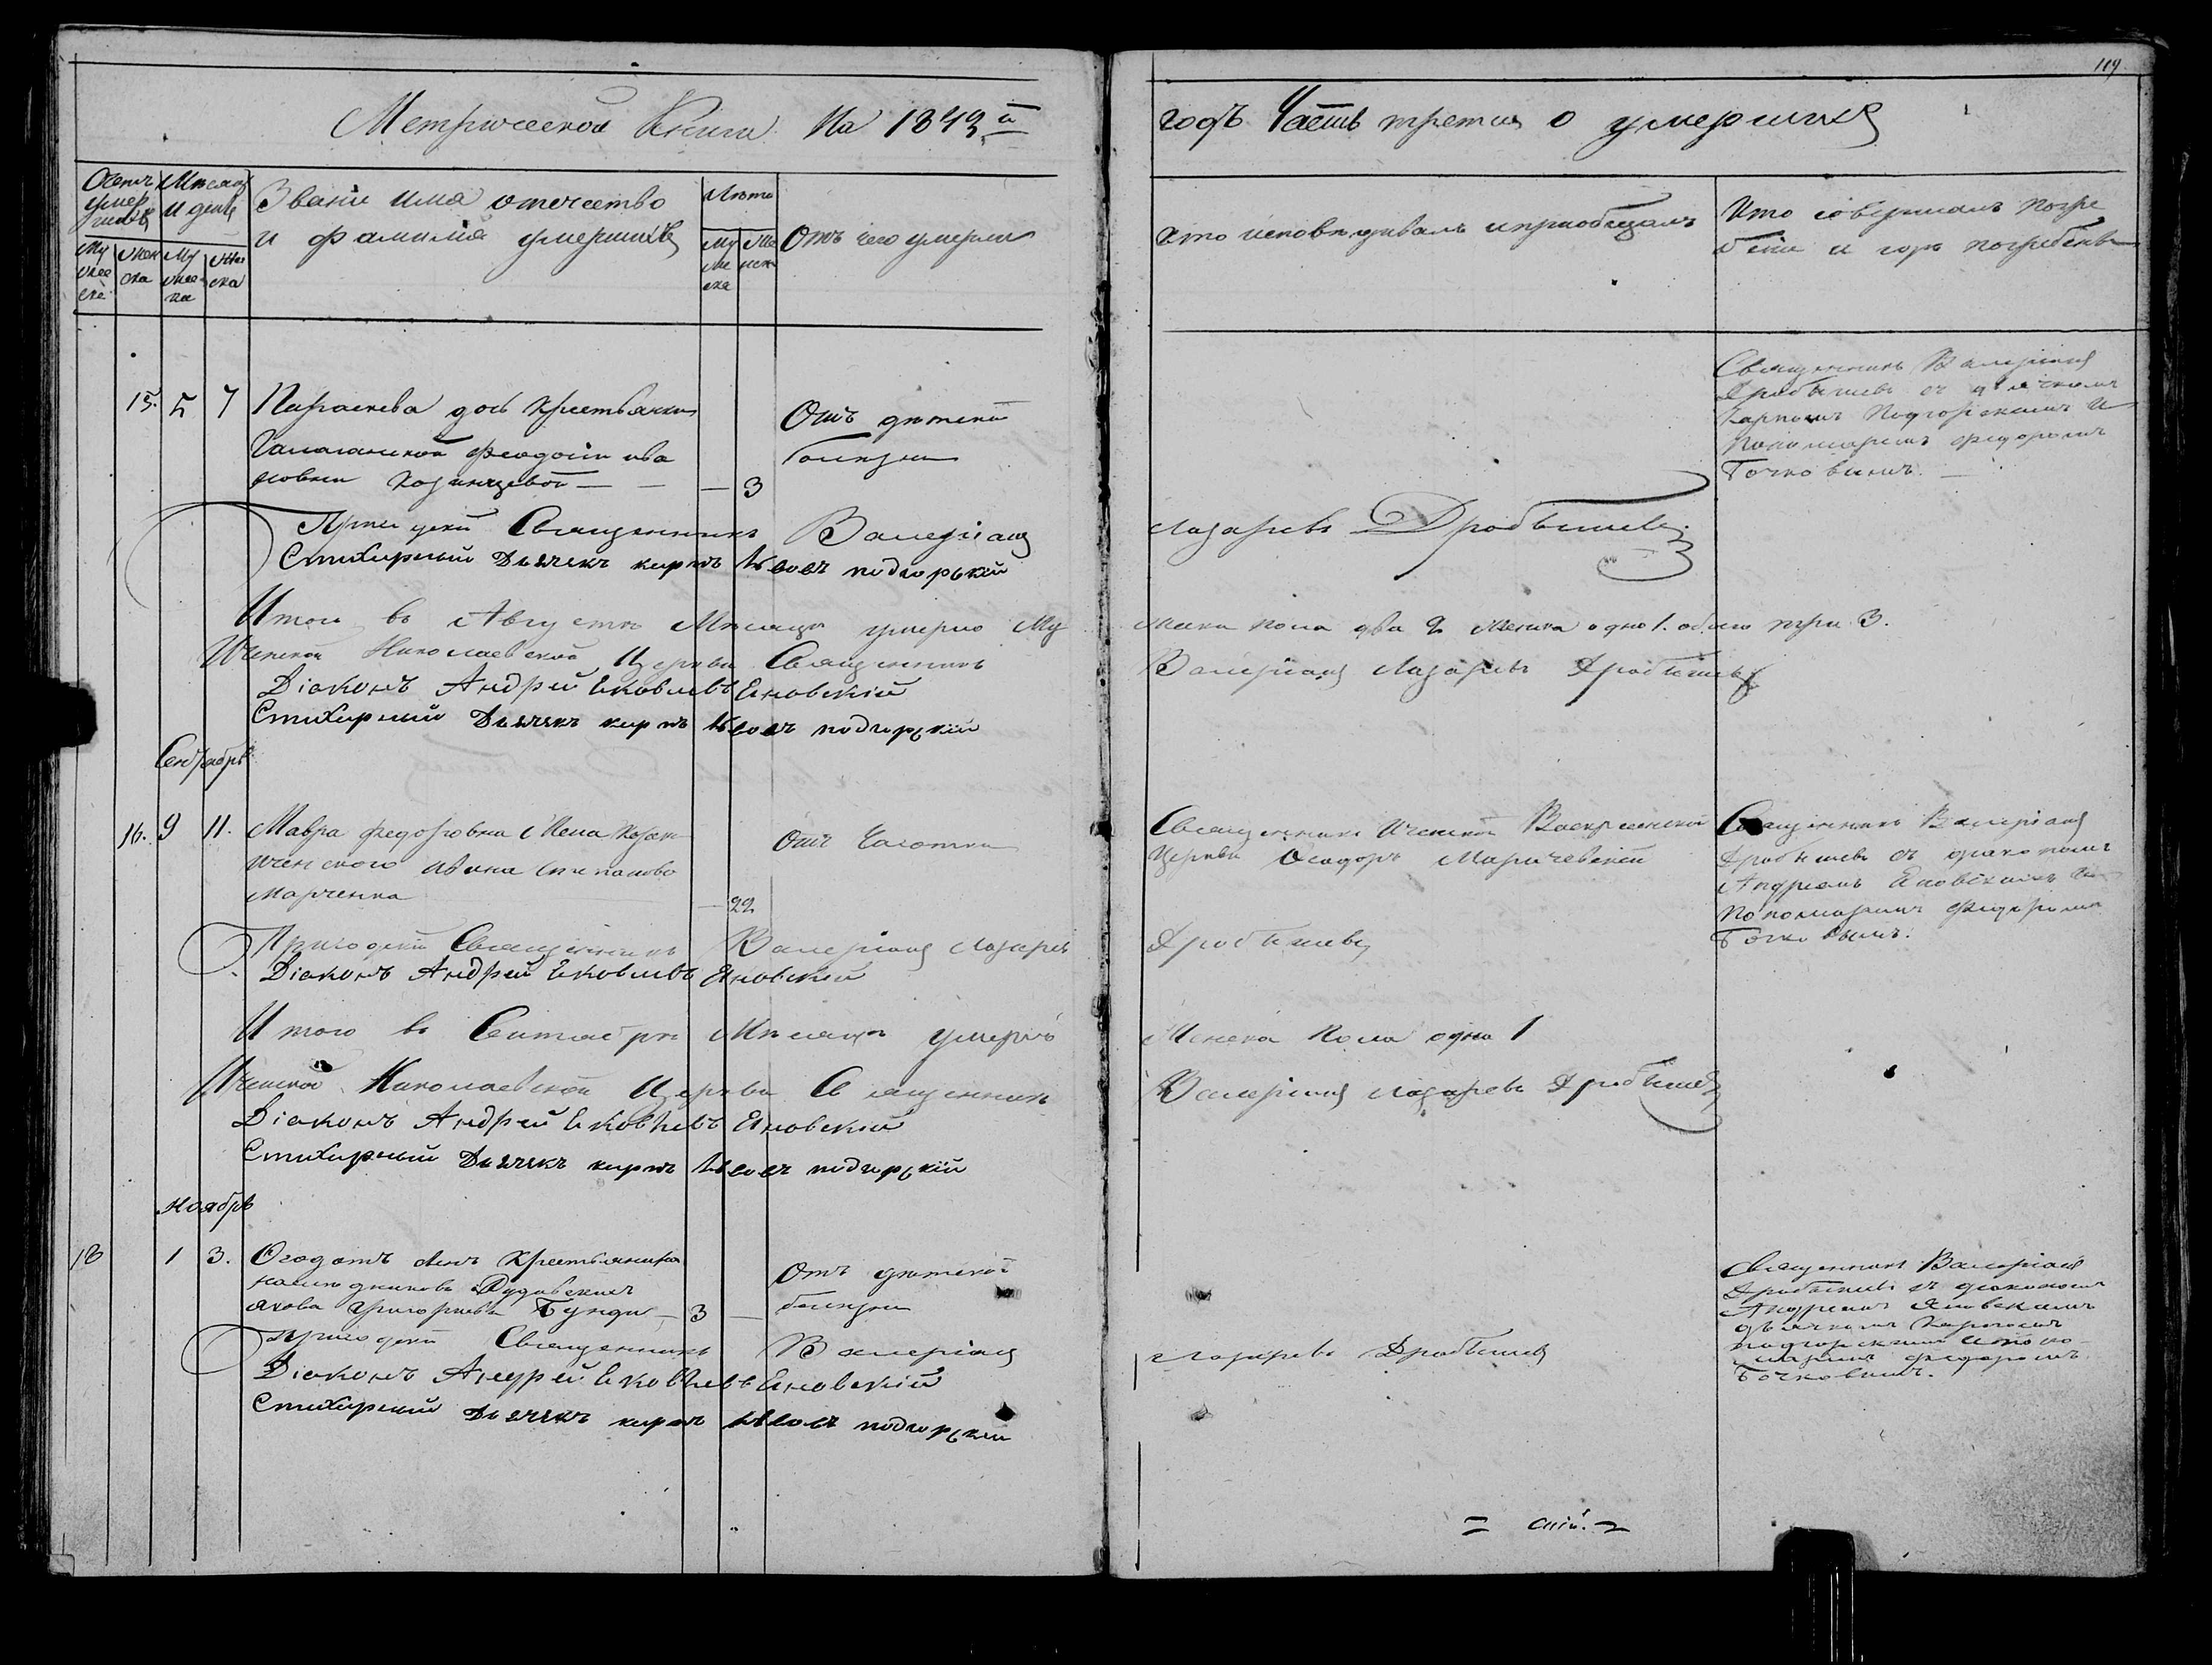 119
Метрической Книги На 1843й
годъ Часть третия о умершихъ
Счетъ умершихъ
Месяцъ и день
Званіе имя отчество
и фамилія умершихъ
Лета
Отъ чего умерли
Кто исповедивалъ и приобщалъ
Кто совершалъ погре
беніе и где погребены
Муже
ска
Жен
ска
Муже
ска
Женска
Муже
ска
Женска
15. 5 7 Параскева дочь Крестьянки
Феодосіи Ива
новны — — 3
Отъ детской
болезни
Священникъ Валеріанъ
Дробишевъ съ дячкомъ
Карпомъ Подгорскимъ и
Пономаремъ Федоромъ
Бочковымъ. —
Приходскій Священникъ Валеріанъ Лазаревъ Дробишевъ
Стихарный Дьячекъ карпъ подгорькій
Итого въ Августе Месяце умерло Му
жеска пола два 2 Женска одно 1. обоего три 3.
Иченской Николаевской Церкви Священникъ Валеріанъ Лазаревъ Дробишевъ
Діаконъ Андрей Яковлевъ Яновскій
Стихарный Дьячекъ карпъ подгорькій
Сентябрь
16. 9 11. Мавра Федоровна Жена Козака
Иченского Ивана Степанова
Марченка — 22
Отъ Чахотки
Священникъ Иченской Воскресенской
Церкви Феодоръ Маричевскій
Священникъ Валеріанъ
Дробишевъ съ діакономъ
Андреемъ Яновскимъ и
Пономаремъ Федоромъ
Бочковымъ.
Приходскій Священникъ Валеріанъ Лазаревъ Дробишевъ
Діаконъ Андрей Яковлевъ Яновскій
Итого въ Сентябре Месяце умерло Женска Пола одна 1
Иченской Николаевской Церкви Священникъ Валеріанъ Лазаревъ Дробишевъ
Діаконъ Андрей Яковлевъ Яновскій
Стихарный Дьячекъ карпъ подгорькій
Ноябрь
18 1 3. сынъ Крестьянина
Якова Григориева — 3 —
Отъ детской
болезни
Священникъ Валеріанъ
Дробишевъ съ діакономъ
Андреемъ Яновскимъ
дьячкомъ Карпомъ
подгорскимъ и поно
маремъ Федоромъ
Бочковымъ.
Приходскій Священникъ Валеріанъ Лазаревъ Дробишевъ
Діаконъ Андрей Яковлевъ Яновскій
Стихарный Дьячекъ карпъ подгорькій